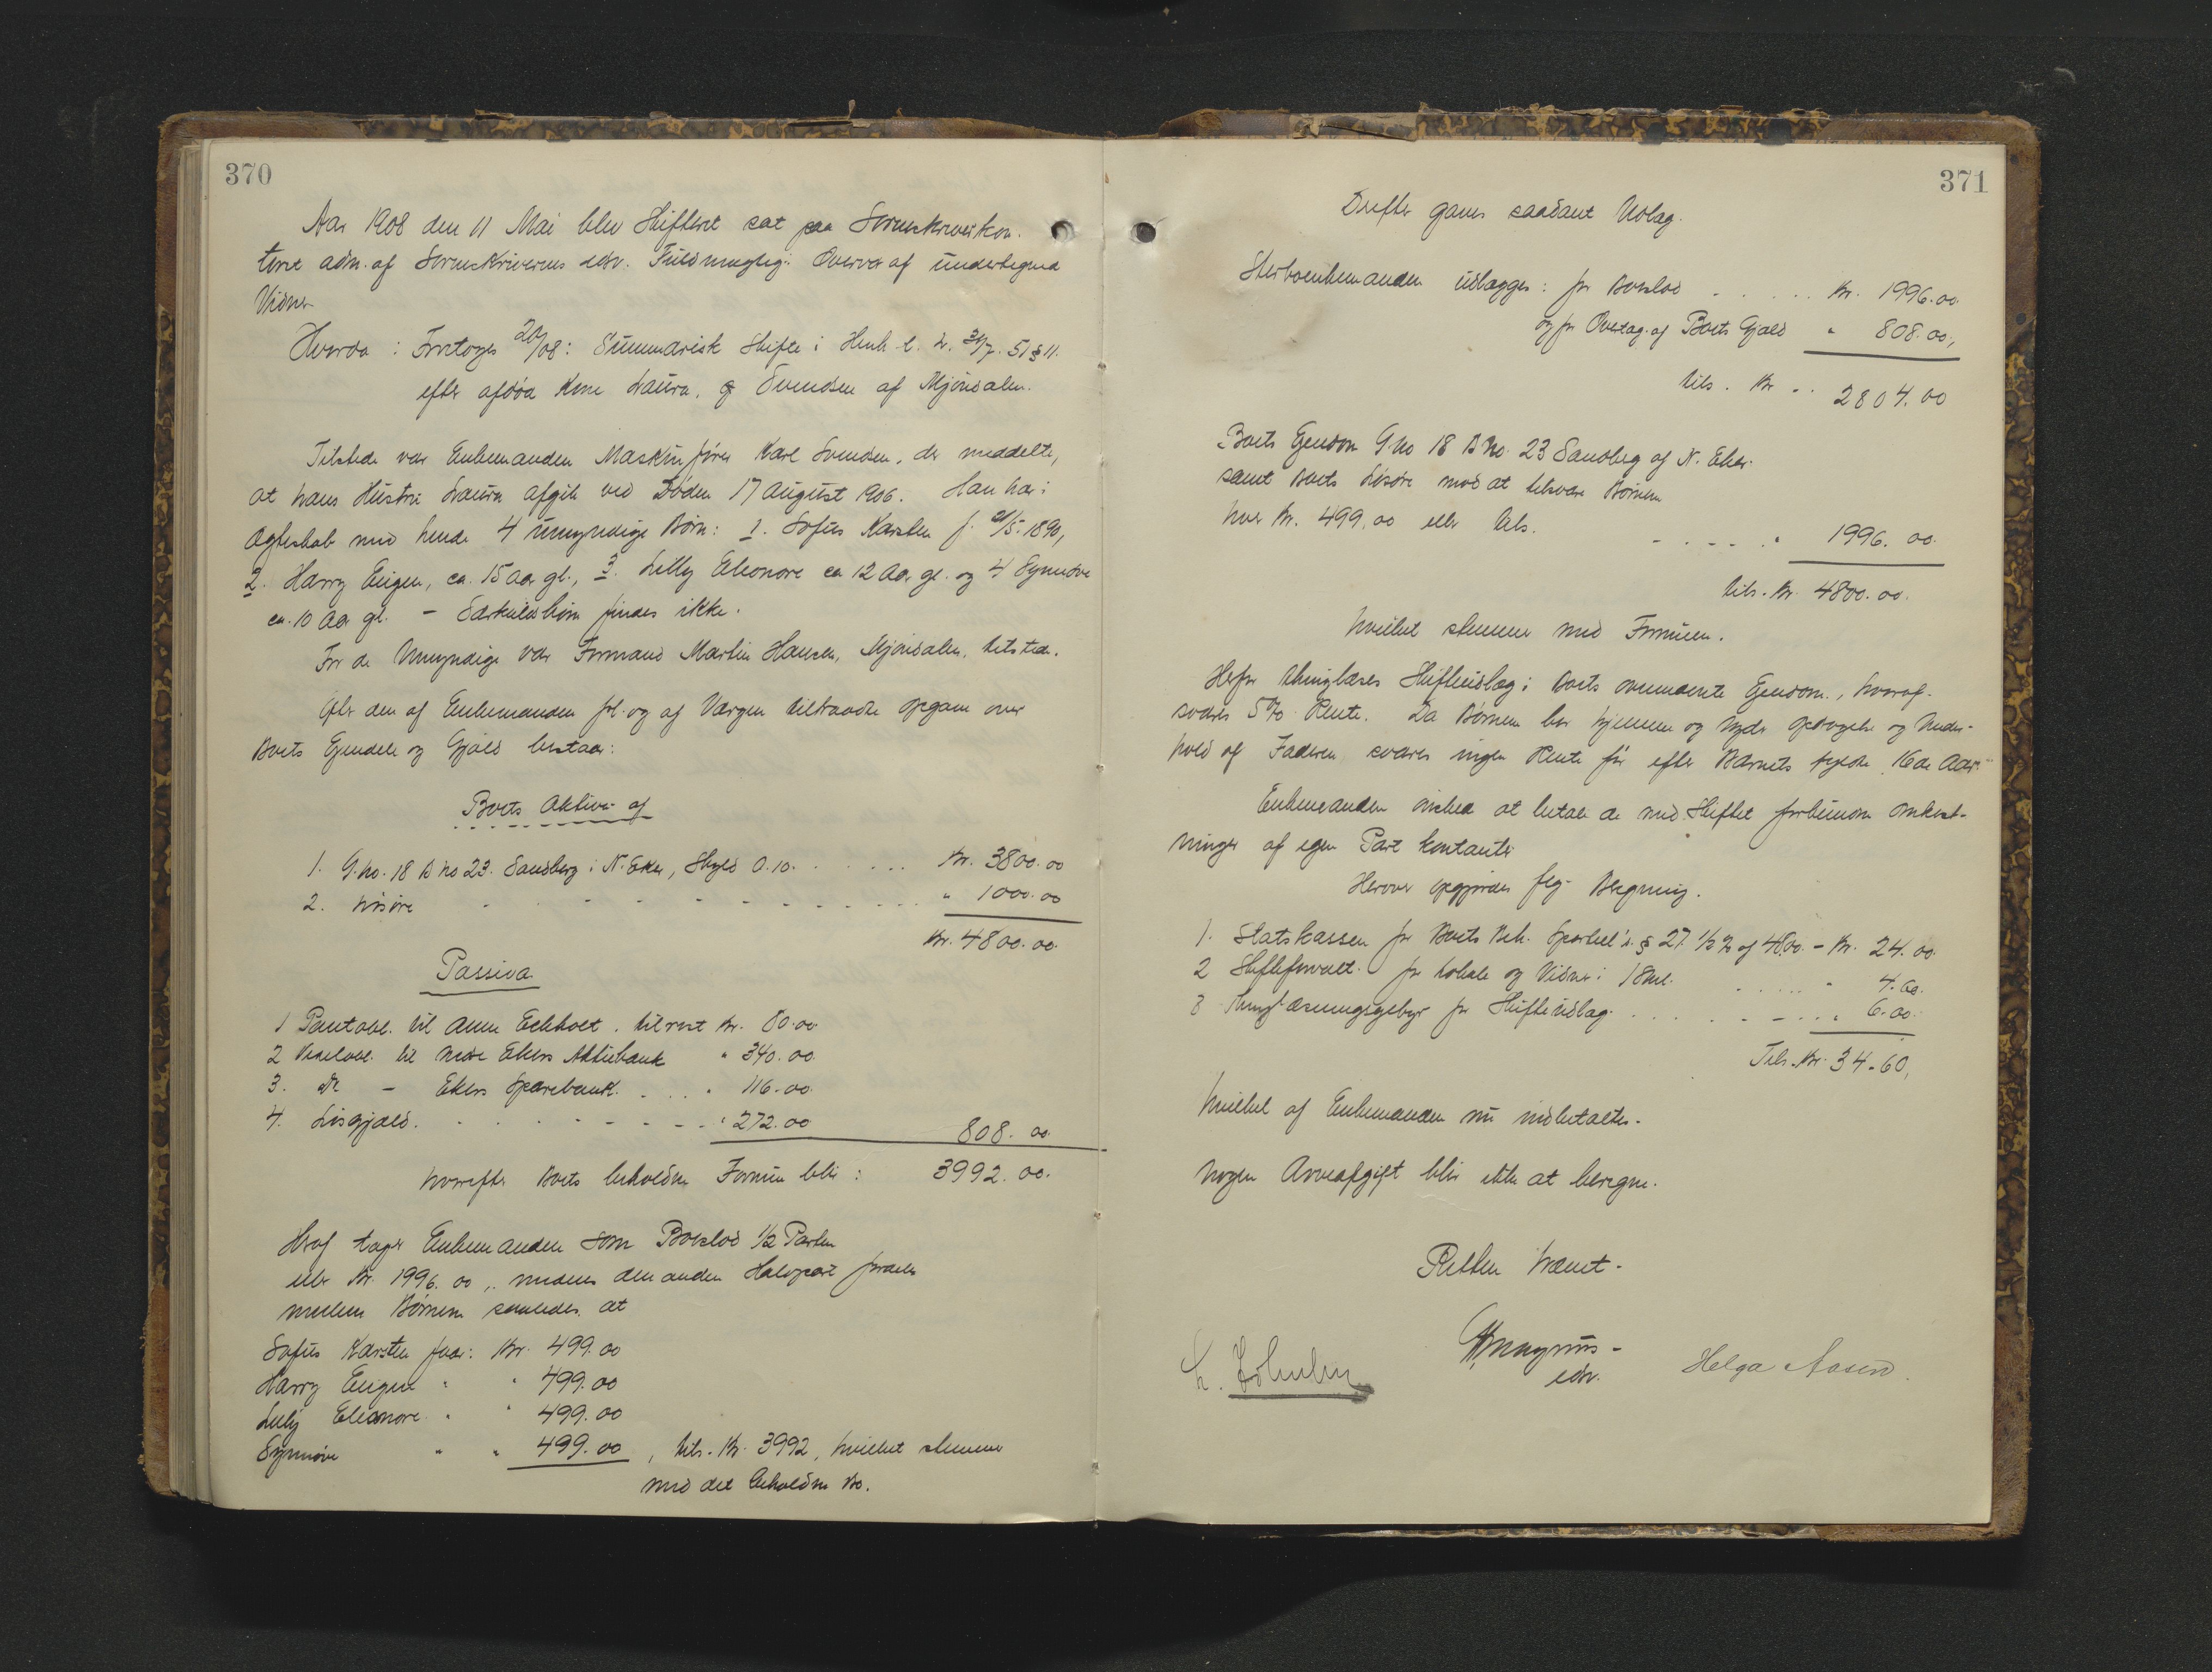 370
Aar 1908 den 11 Mai blev Skifteret sat paa Sorenskriverkon-
toret adm. af Sorenskriverens edsv. Fuldmægtig i Overvær af undertegnede
Vidner
Hvorda: Foretoges 20/08: Summarisk Skifte i Henh. t. L. 30/7. 51 § 11.
efter afdøde Kone Laura, g. Svendsen af Mjøndalen.
Tilstede var Enkemanden Maskinfører Karl Svendsen, der meddelte,
at hans Hustru Laura afgik ved Døden 17 August 1906. Han har i
Ægteskab med hende 4 umyndige Børn: 1. Sofus Karsten f. /5. 1890,
2. Harry Eugen, ca. 15 Aar gl., 3. Lilly Eleonore ca 12 Aar gl. og 4 Synnøve
ca. 10 Aar gl. – Særkuldsbørn findes ikke.
For de Umyndige var Formand Martin Hansen, Mjøndalen, tilstede.
Efter den af Enkemanden frl. og af Værgen tiltraadte Opgave over
Boets Eiendele og Gjæld bestaar:
Boets Aktiva af
1. G.no. 18 B no 23. Sandberg i N. Eker, Skyld 0.10. . . . . . Kr. 3800.00
2. Løsøre - - - - - - - - . . . " 1000.00
Kr. 4800.00.
Passiva
1 Pantobl. til Anne Eckholt. tilrest Kr. 80.00
2 Vexelobl. til Nedre Ekers Aktiebank " 340.00
3. do - Ekers Sparebank. . . . " 116.00
4. Løsgjæld. - - - - - - - " 272.00 808.00
hvorefter Boets beholdne Formue blir: 3992.00.
Heraf tager Enkemanden som Boslod 1/2 Parten
eller Kr. 1996.00,, medens den anden Halvpart fordeles
mellem Børnene saaledes at
Sofus Karsten faar: Kr. 499.00
Harry Eugen " " 499.00
Lilly Eleonore " " 499.00
Synnøve " " 499.00, tils. Kr. 3992, hvilket stemmer
med det beholdne Bo.
371
Derefter gaves saadant Udlæg.
Sterboenkemanden udlægges: for Boslod . . . . . Kr. 1996.00
og for Overtag. af Boets Gjæld " 808.00,
tils. Kr . . 2804.00
Boets Eiendom G no 18 B no. 23 Sandberg af N. Eker
samt Boets Løsøre mod at tilsvare Børnene
hver Kr. 499,00 eller tils. - - - . . " 1996.00.
tils. Kr. 4800.00.
hvilket stemmer med Formuen.
Herfor thinglæses Skifteudlæg i Boets ovennævnte Eiendom, hvoraf
svares 5% Rente. Da Børnene bor hjemme og nyder Opdragelse og Under-
hold af Faderen, svares ingen Rente før efter Barnets fyldte 16de Aar.
Enkemanden ønsked at betale de med Skiftet forbundne Omkost-
ninger af egen Part kontant.
Herover opgjordes flg. Beregning.
1. Statskassen for Boets Beh. Sportell. § 27. 1/2 % af 4800. - Kr. 24.00.
2 Skifteforvalt. for Lokale og Vidner i 18 . . . . . " 4.60.
3 Thinglæsningsgebyr for Skifteudlæg . . . . - - . . " 6.00.
Tils. Kr. 34.60,
hvilket af Enkemanden nu indbetaltes.
Nogen Arveafgift blir ikke at beregne.
Retten hævet.
Magnus
edsv.
Helga Aasen.